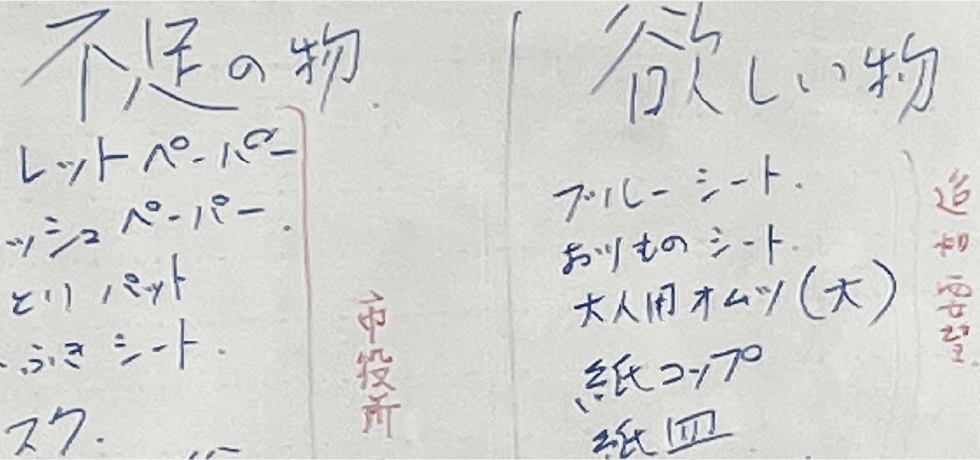 不足の物
レットペーパー
ッシュペーパー.
とりパット
ふきシート.
スク.
市役所
欲しい物
ブルーシート.
おりものシート.
大人用オムツ(大)
紙コップ
紙皿
追加要望.